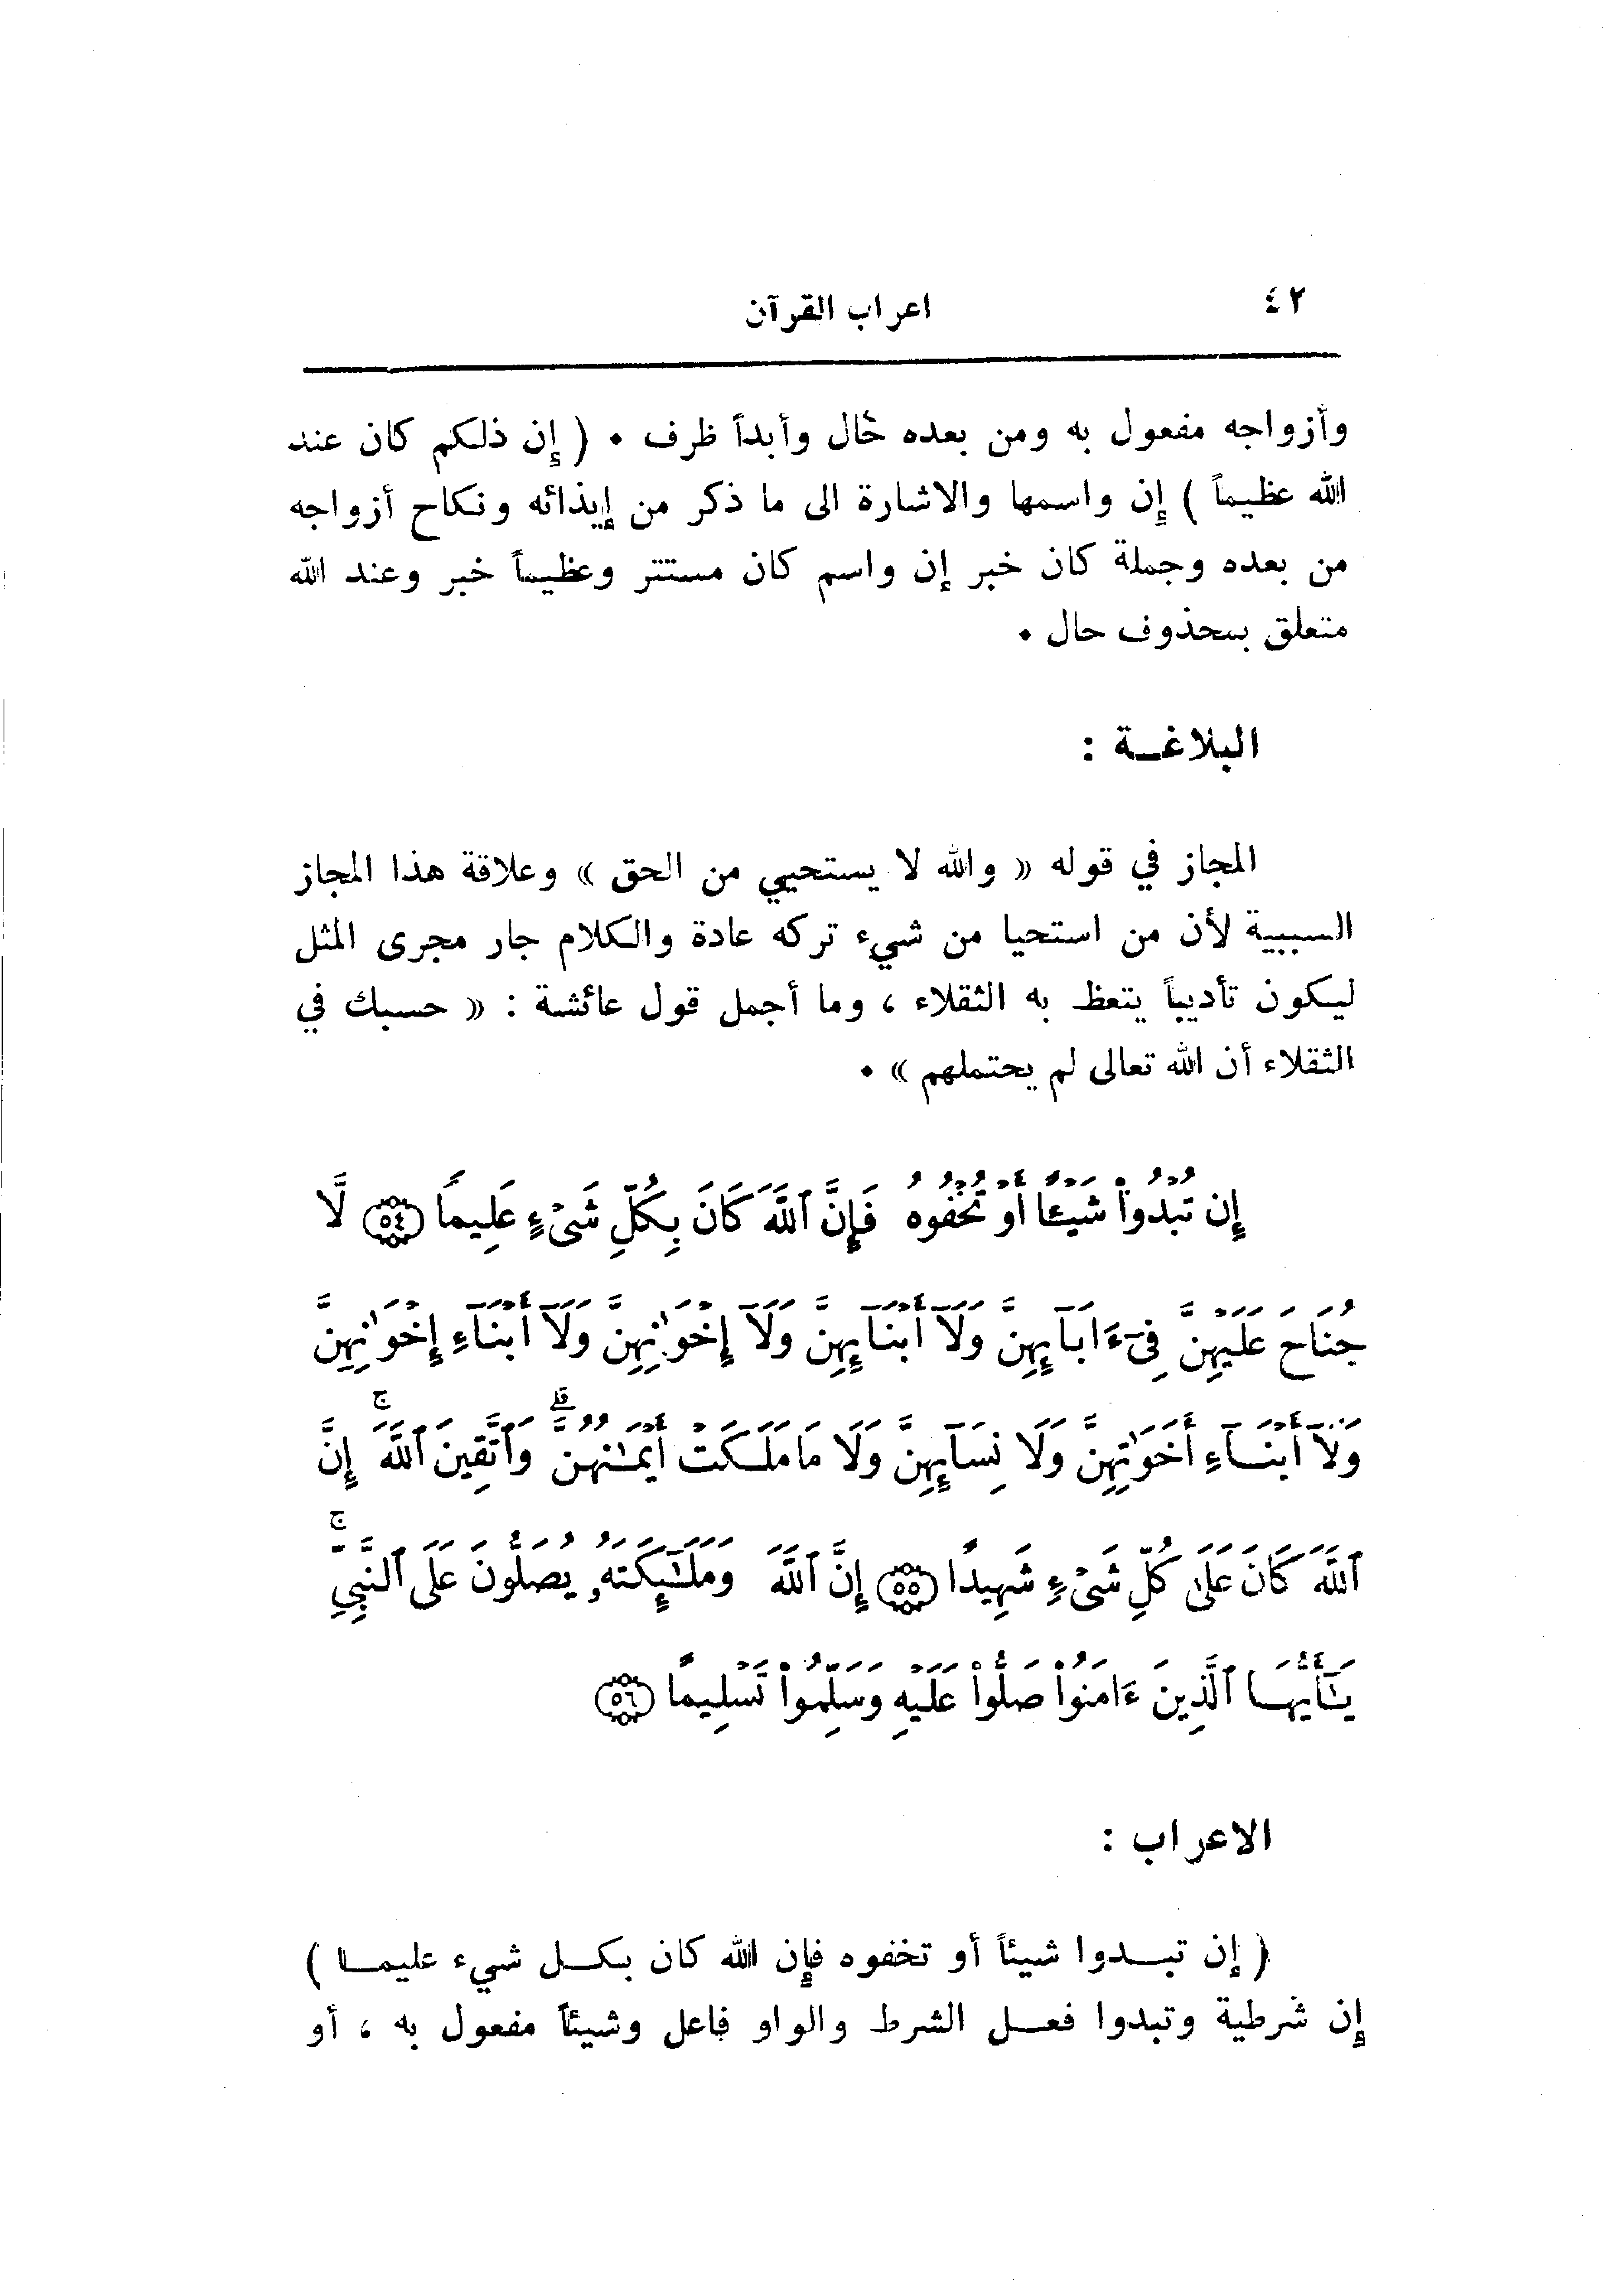 ٤٢
اعراب القرآن
وأزواجه مفعول به ومن بعده حال وأبداً ظرف . ( إن ذلكم كان عند
الله عظيماً ) إن واسمها والاشارة الى ما ذكر من إيذائه ونكاح أزواجه
من بعده وجملة كان خبر إن واسم كان مستتر وعظيماً خبر وعند الله
متعلق بمحذوف حال .
البلاغـة :
المجاز في قوله « والله لا يستحيي من الحق » وعلاقة هذا المجاز
السببية لأن من استحيا من شيء تركه عادة والكلام جار مجرى المثل
ليكون تأديباً يتعظ به الثقلاء ، وما أجمل قول عائشة : « حسبك في
الثقلاء أن الله تعالى لم يحتملهم » .
إِن تُبْدُوا۟ شَيْـًٔا أَوْ تُخْفُوهُ فَإِنَّ ٱللَّهَ كَانَ بِكُلِّ شَىْءٍ عَلِيمًا ﴿٥٤﴾ لَّا
جُنَاحَ عَلَيْهِنَّ فِىٓ ءَابَآئِهِنَّ وَلَآ أَبْنَآئِهِنَّ وَلَآ إِخْوَٰنِهِنَّ وَلَآ أَبْنَآءِ إِخْوَٰنِهِنَّ
وَلَآ أَبْنَآءِ أَخَوَٰتِهِنَّ وَلَا نِسَآئِهِنَّ وَلَا مَا مَلَكَتْ أَيْمَٰنُهُنَّ ۗ وَٱتَّقِينَ ٱللَّهَ ۚ إِنَّ
ٱللَّهَ كَانَ عَلَىٰ كُلِّ شَىْءٍ شَهِيدًا ﴿٥٥﴾ إِنَّ ٱللَّهَ وَمَلَٰٓئِكَتَهُۥ يُصَلُّونَ عَلَى ٱلنَّبِىِّ ۚ
يَٰٓأَيُّهَا ٱلَّذِينَ ءَامَنُوا۟ صَلُّوا۟ عَلَيْهِ وَسَلِّمُوا۟ تَسْلِيمًا ﴿٥٦﴾
الاعراب :
( إن تبـدوا شيئاً أو تخفوه فإن الله كان بكـل شيء عليمـا )
إن شرطية وتبدوا فعـل الشرط والواو فاعل وشيئاً مفعول به ، أو